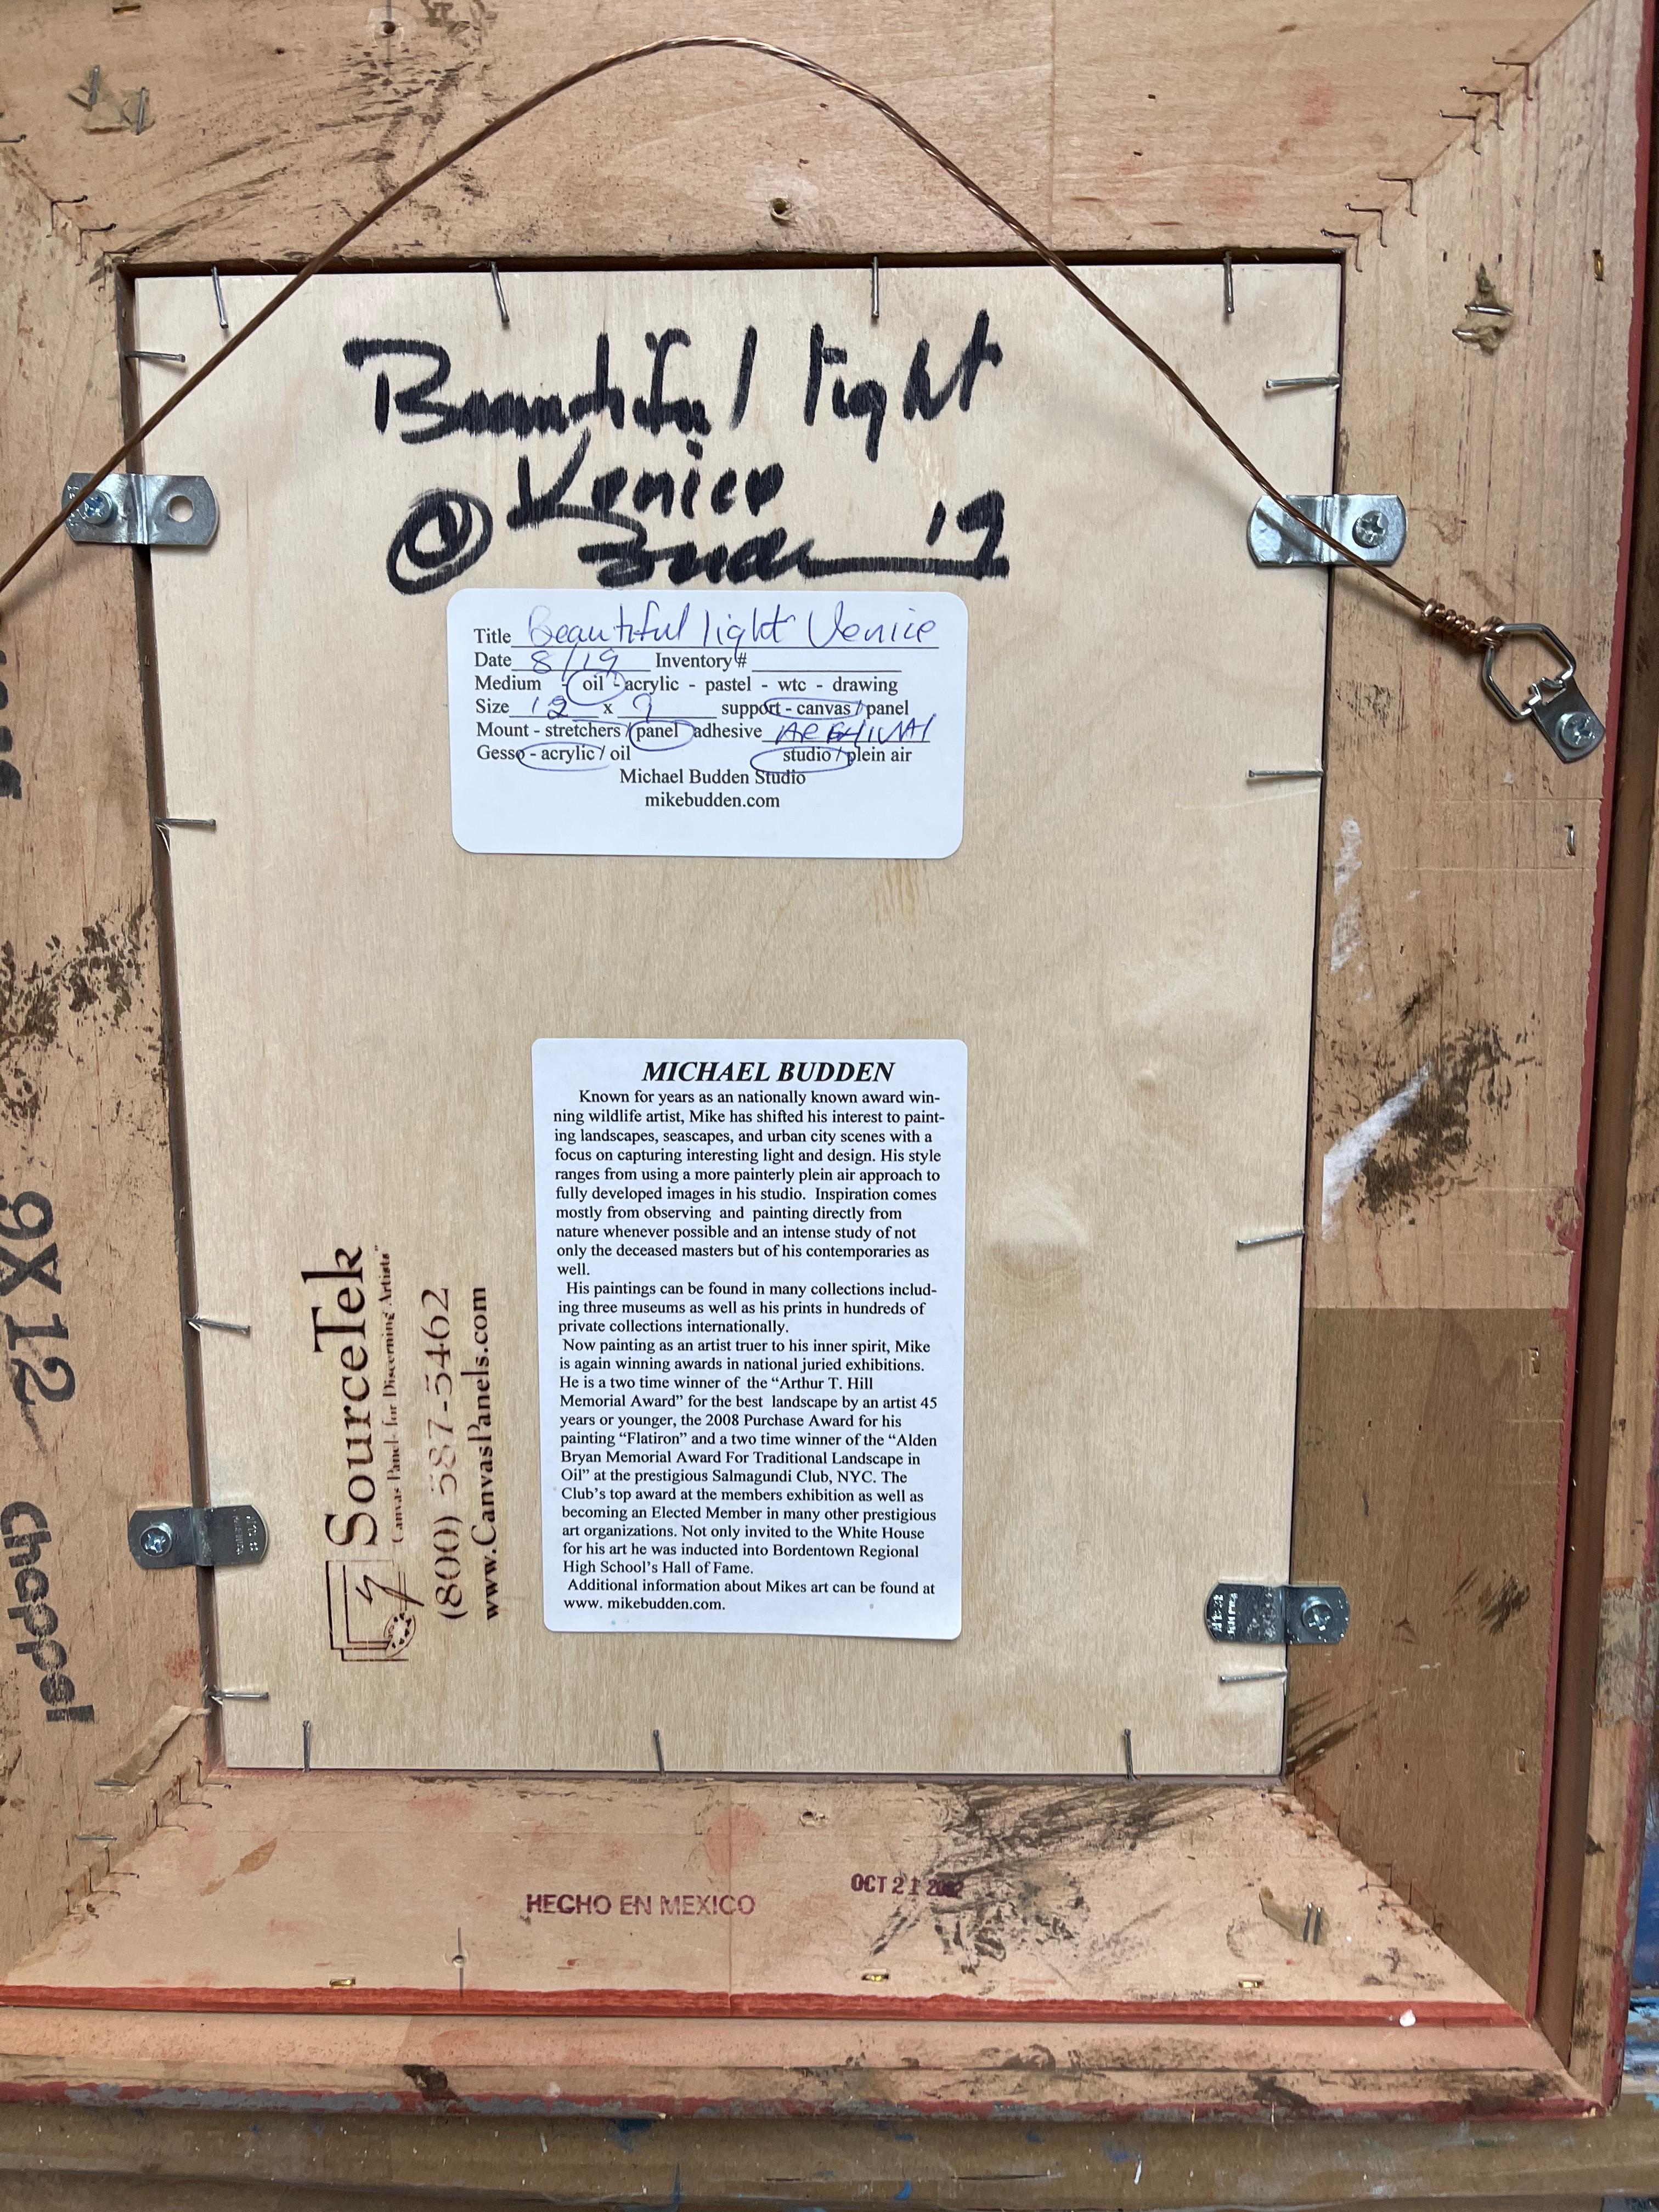 Beautiful light
Venice
© Budden '19
Title Beautiful light Venice
Date 8/19 Inventory#
Medium - oil - acrylic - pastel - wtc - drawing
Size 12 x 9 support - canvas / panel
Mount - stretchers / panel adhesive ARCHIVAl
Gesso - acrylic / oil studio / plein air
Michael Budden Studio
mikebudden.com
MICHAEL BUDDEN
Known for years as an nationally known award win-
ning wildlife artist, Mike has shifted his interest to paint-
ing landscapes, seascapes, and urban city scenes with a
focus on capturing interesting light and design. His style
ranges from using a more painterly plein air approach to
fully developed images in his studio. Inspiration comes
mostly from observing and painting directly from
nature whenever possible and an intense study of not
only the deceased masters but of his contemporaries as
well.
His paintings can be found in many collections includ-
ing three museums as well as his prints in hundreds of
private collections internationally.
Now painting as an artist truer to his inner spirit, Mike
is again winning awards in national juried exhibitions.
He is a two time winner of the “Arthur T. Hill
Memorial Award” for the best landscape by an artist 45
years or younger, the 2008 Purchase Award for his
painting “Flatiron” and a two time winner of the “Alden
Bryan Memorial Award For Traditional Landscape in
Oil” at the prestigious Salmagundi Club, NYC. The
Club’s top award at the members exhibition as well as
becoming an Elected Member in many other prestigious
art organizations. Not only invited to the White House
for his art he was inducted into Bordentown Regional
High School’s Hall of Fame.
Additional information about Mikes art can be found at
www. mikebudden.com.
SourceTek
"Canvas Panels for Discerning Artists"
(800) 587-5462
www.CanvasPanels.com
9X12 Chappel
HECHO EN MEXICO
OCT 21 2002